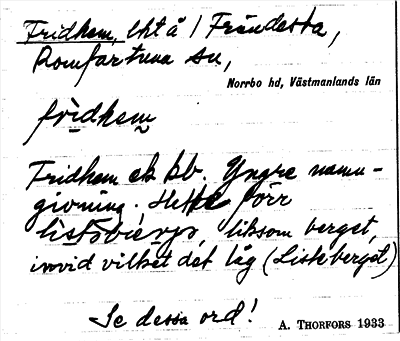 Fridhem, lht å / Frändesta,
Romfartuna sn,
Norrbo hd, Västmanlands län
fri̱dhem̰
Fridhem ek kb. Yngre namn-
givning. Hette förr
listsbärjs, liksom berget,
invid vilket det låg (Liskberget)
Se dessa ord!
A. THORFORS 1933